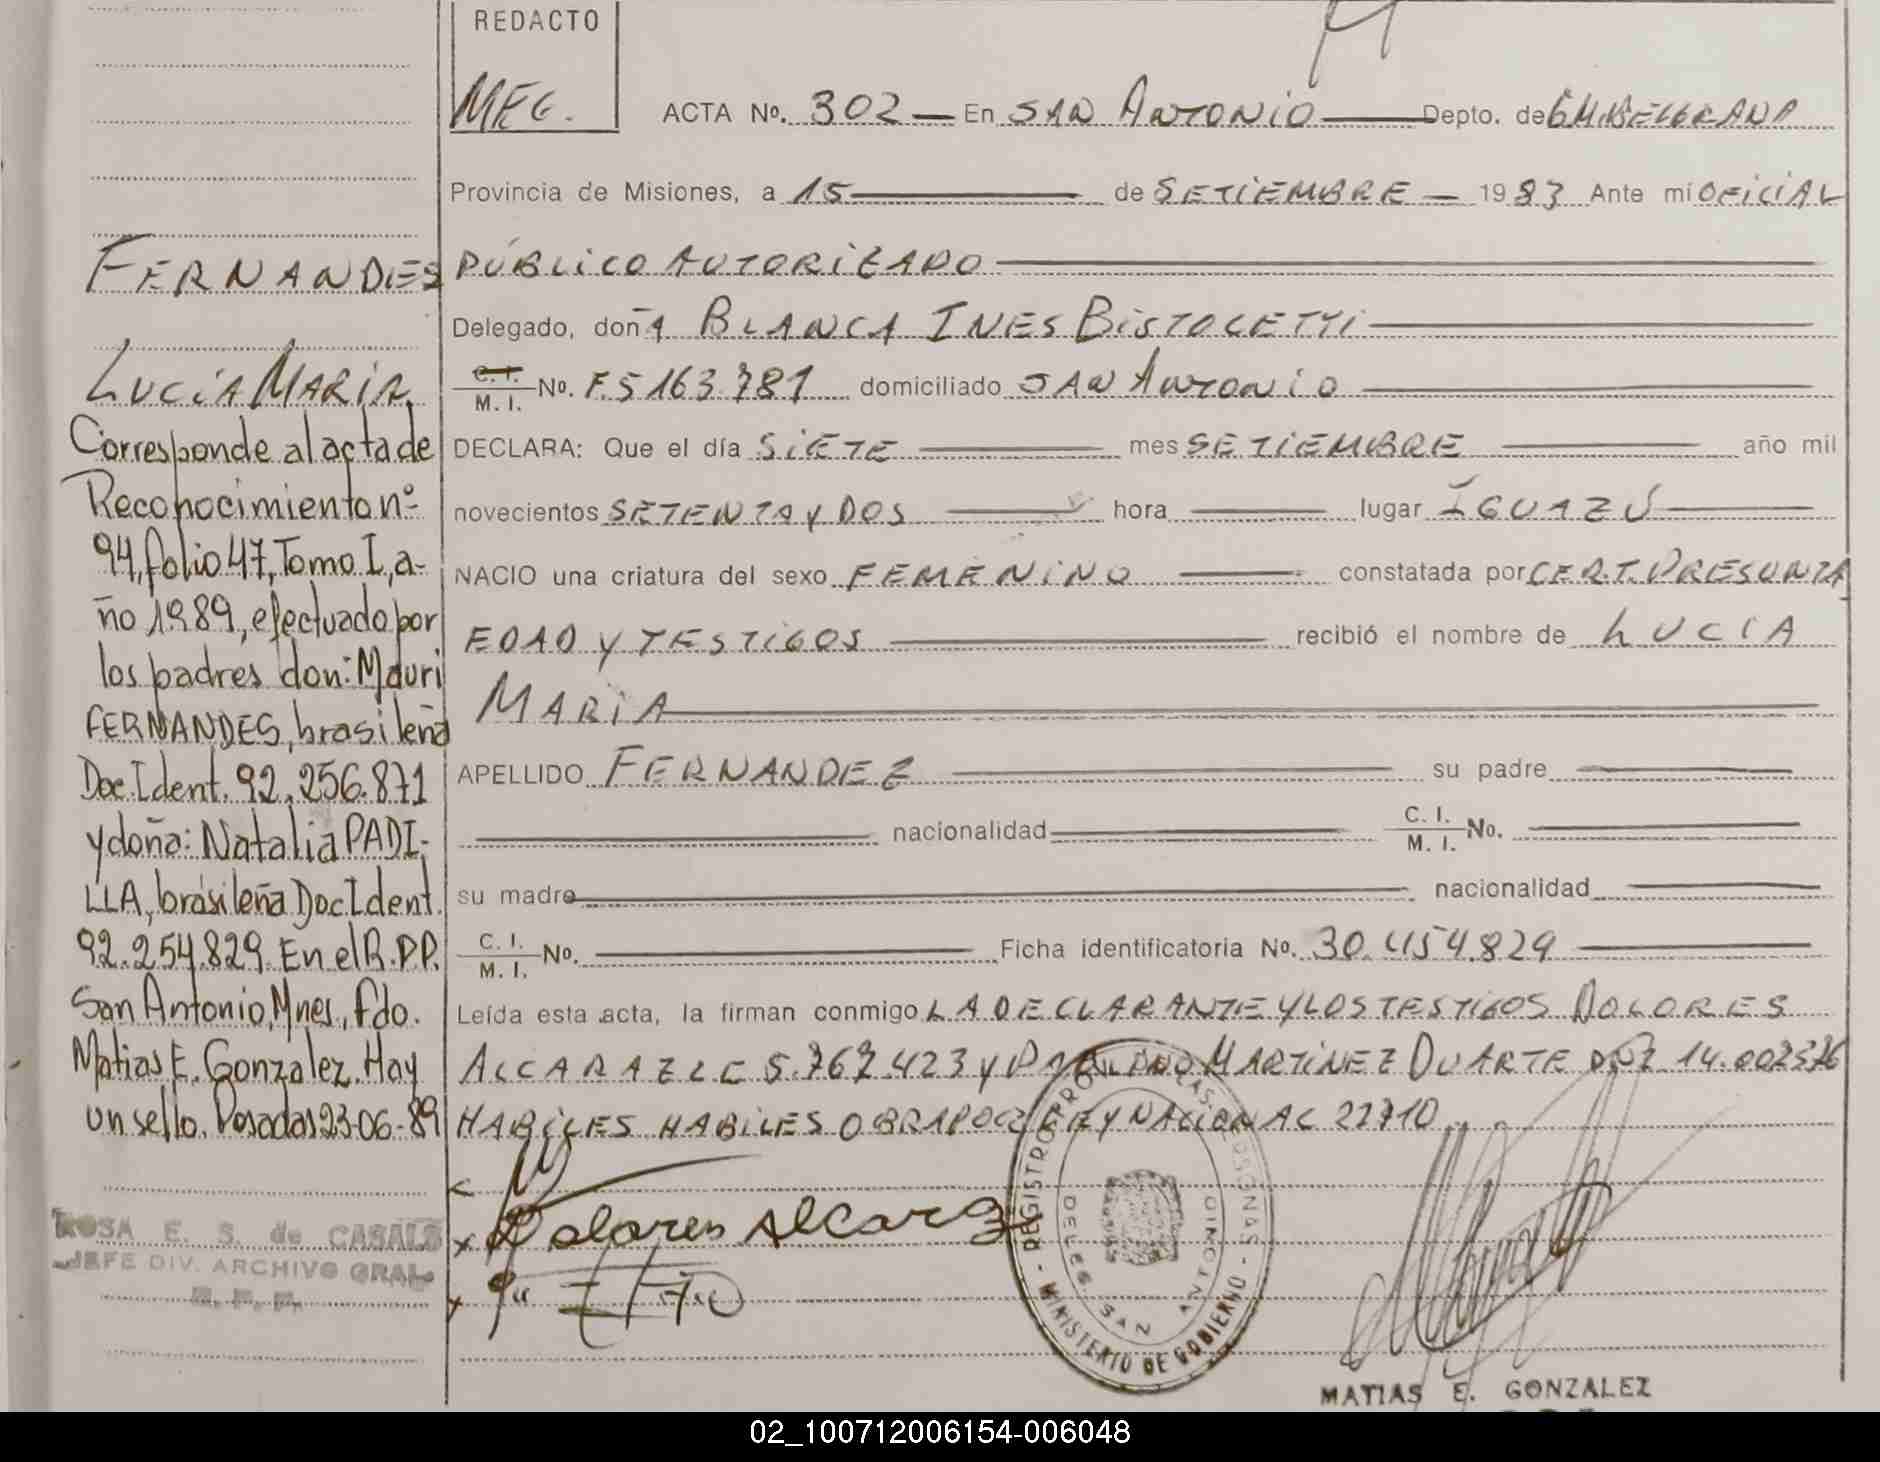 REDACTO
MEG.
ACTA No. 302 — En SAN ANTONIO — Depto. de GM.BELGRANO
Provincia de Misiones, a 15 — de SETIEMBRE — 1983 Ante mi OFICIAL
PÚBLICO AUTORIZADO
Delegado, doña BLANCA INES BISTOLETTI
C. I. / M. I. No. F.5163.781 domiciliado SAN ANTONIO
DECLARA: Que el día SIETE — mes SETIEMBRE — año mil
novecientos SETENTA y DOS — hora — lugar IGUAZÚ
NACIO una criatura del sexo FEMENINO — constatada por CERT. PRESUNTA
EDAD y TESTIGOS — recibió el nombre de LUCIA
MARIA
APELLIDO FERNANDEZ — su padre —
— nacionalidad — C. I. / M. I. No. —
su madre — nacionalidad —
C. I. / M. I. No. — Ficha identificatoria No. 30.454.829
Leída esta acta, la firman conmigo LA DECLARANTE Y LOS TESTIGOS DOLORES
ALCARAZ LC 5.767.423 y MARTINEZ DUARTE DNI 14.002376
HABILES HABILES OBRA POR LEY NACIONAL 22710
Dolores Alcaraz
REGISTRO PROV. DE LAS PERSONAS - MINISTERIO DE GOBIERNO -
DELEG. SAN ANTONIO
MATIAS E. GONZALEZ
FERNANDES
LUCIA MARIA
Corresponde al acta de
Reconocimiento nº
94, folio 47, Tomo I, a-
ño 1989, efectuado por
los padres don: Mauri
FERNANDES, brasileña
Doc. Ident. 92.256.871
y doña: Natalia PADI-
LLA, brasileña Doc Ident.
92.254.829. En el R.P.P.
San Antonio, Mnes, fdo.
Matias E. Gonzalez. Hay
un sello. Posadas 23-06-89
ROSA E. S. de CASALS
JEFE DIV. ARCHIVO GRAL
02_100712006154-006048